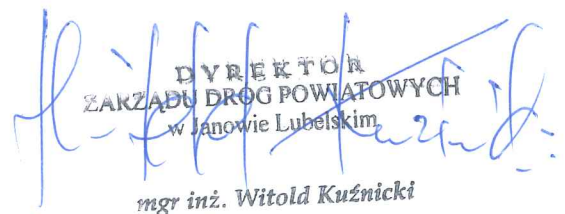 DYREKTOR
ZARZĄDU DRÓG POWIATOWYCH
w Janowie Lubelskim
mgr inż. Witold Kuźnicki